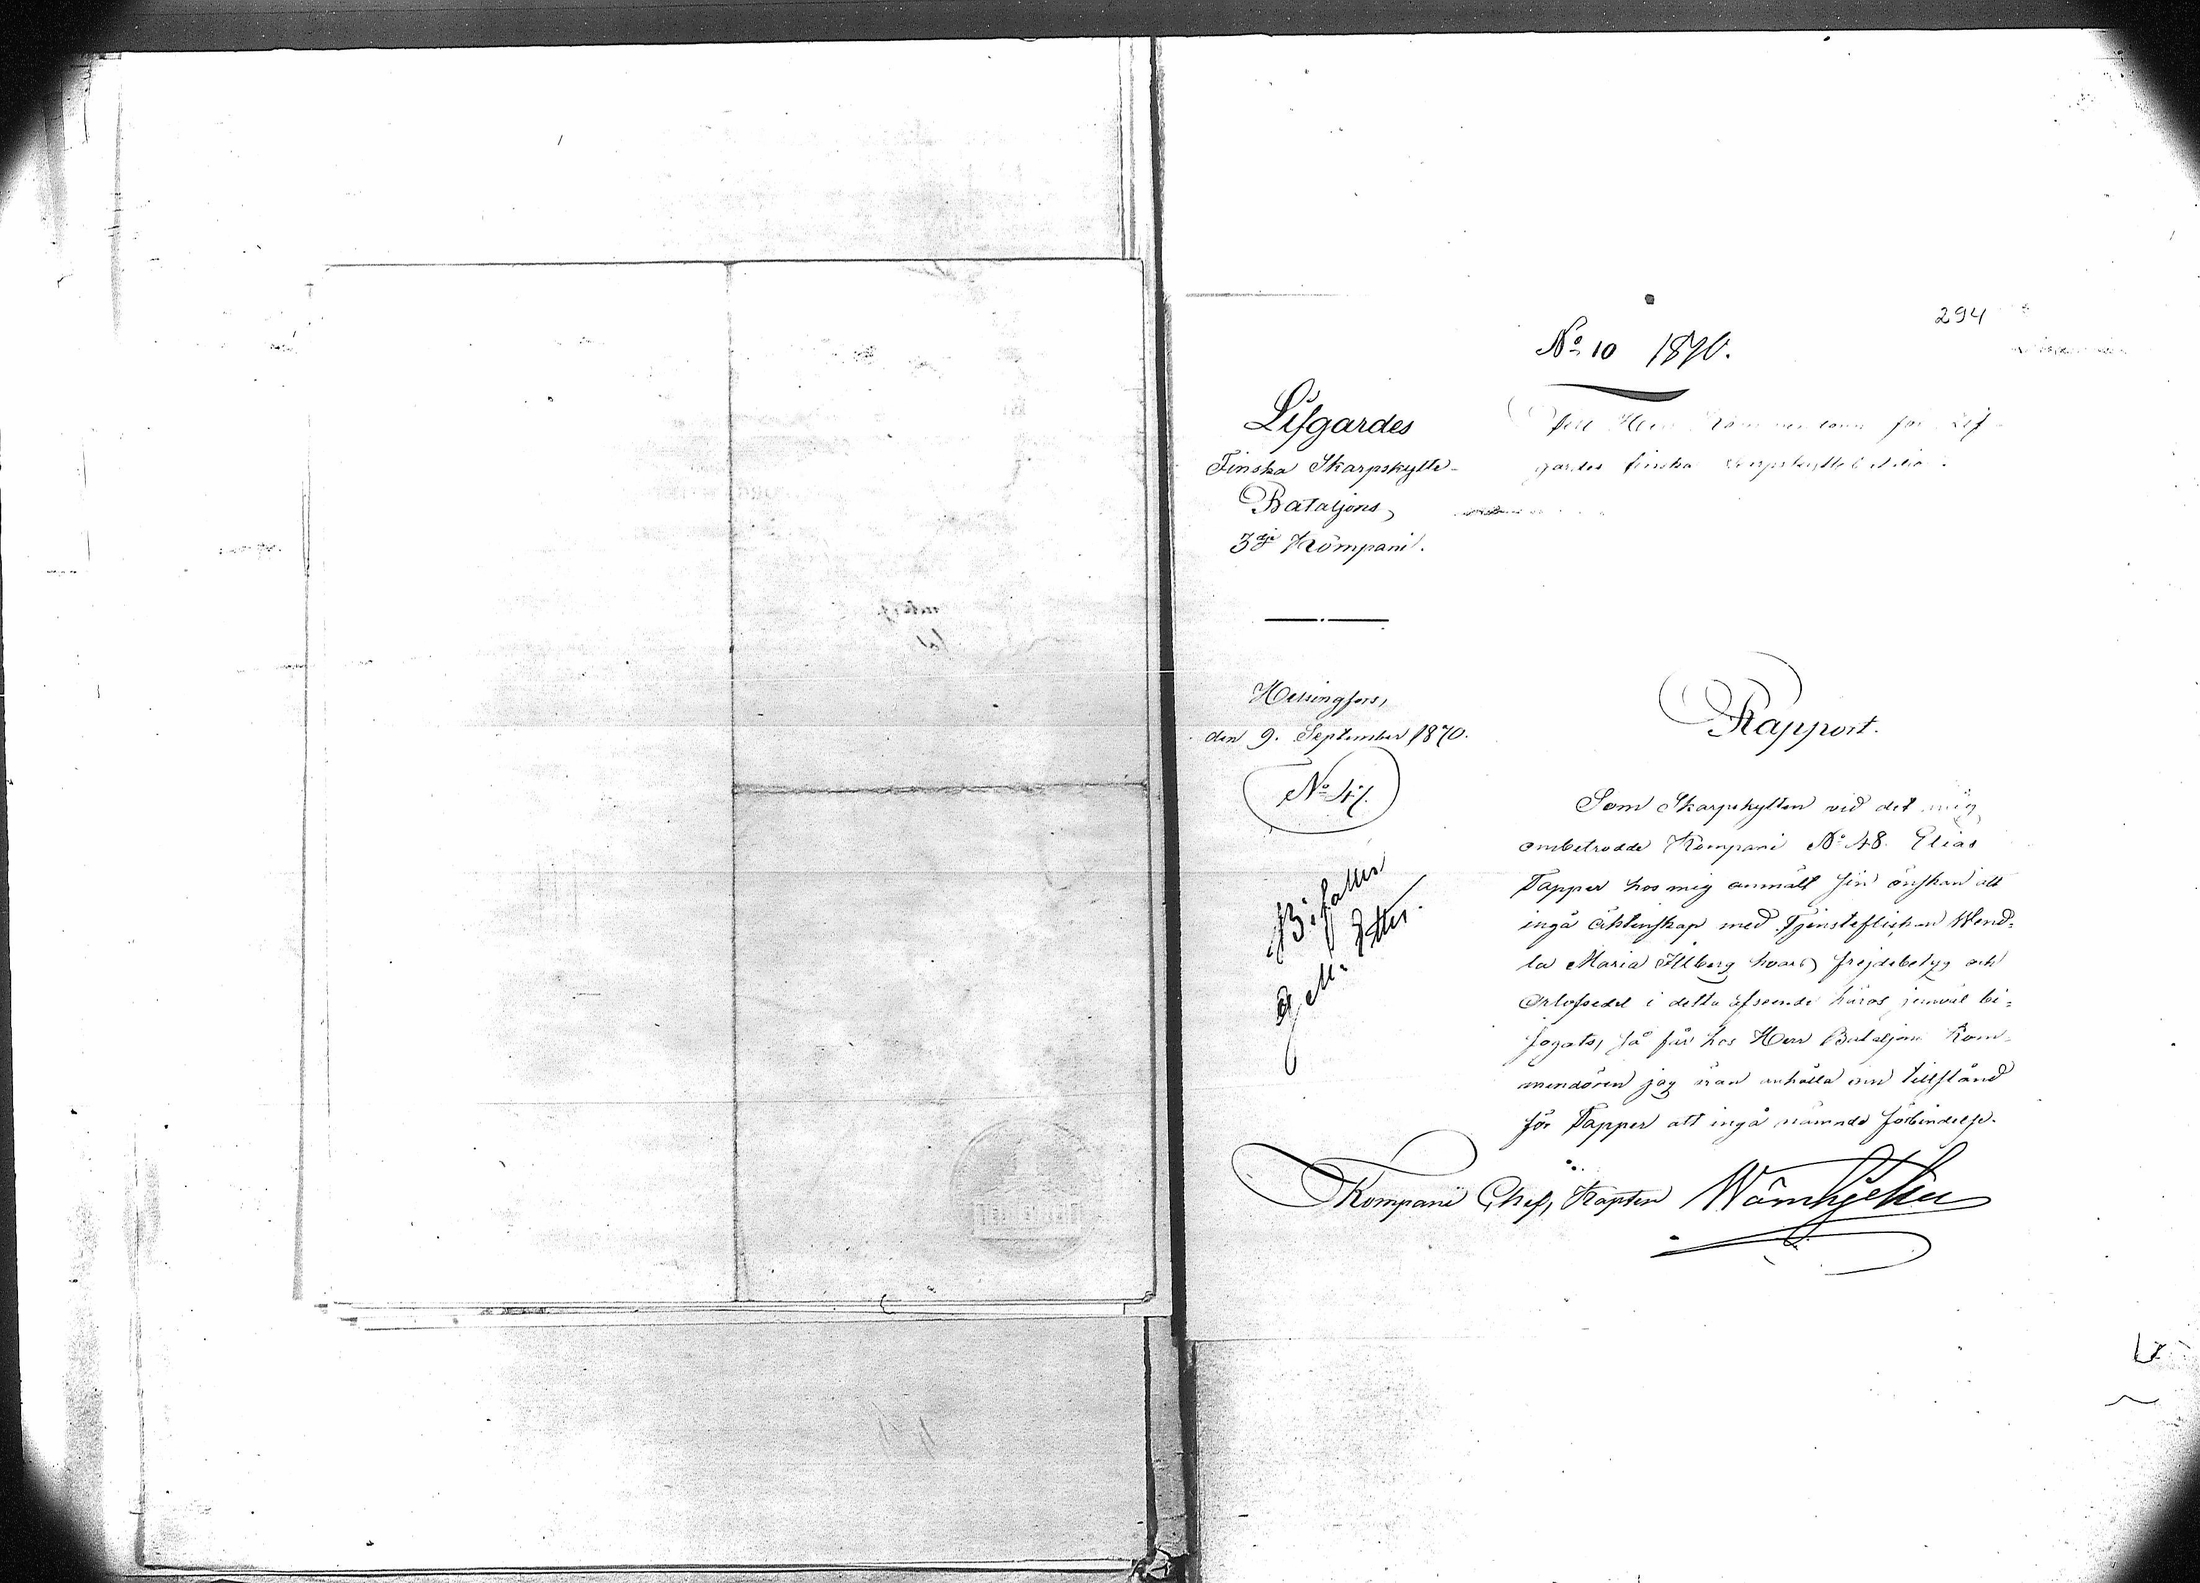 294
No 10 1870.
Lifgardes
Finska Skarpskytte-
Bataljons,
3dje Kompani.
Till Herr Kommendören för Lif-
gardes finska Skarpskyttebataljon.
Helsingfors,
den 9. September 1870.
Bifalles
Rapport.
Som Skarpskytten vid det mig
ombetrodde Kompani No 48. Elias
Tapper hos mig anmält sin önskan att
ingå äktenskap med Tjensteflickan Wend-
la Maria Illberg hvars frejdebetyg och
Orlofsedel i detta afseende häros jemväl bi-
fogats, så får hos Herr Bataljons Kom-
mendören jag äran anhålla om tillstånd
för Tapper att ingå nämnde förbindelse.
Kompani Chef, Kapten